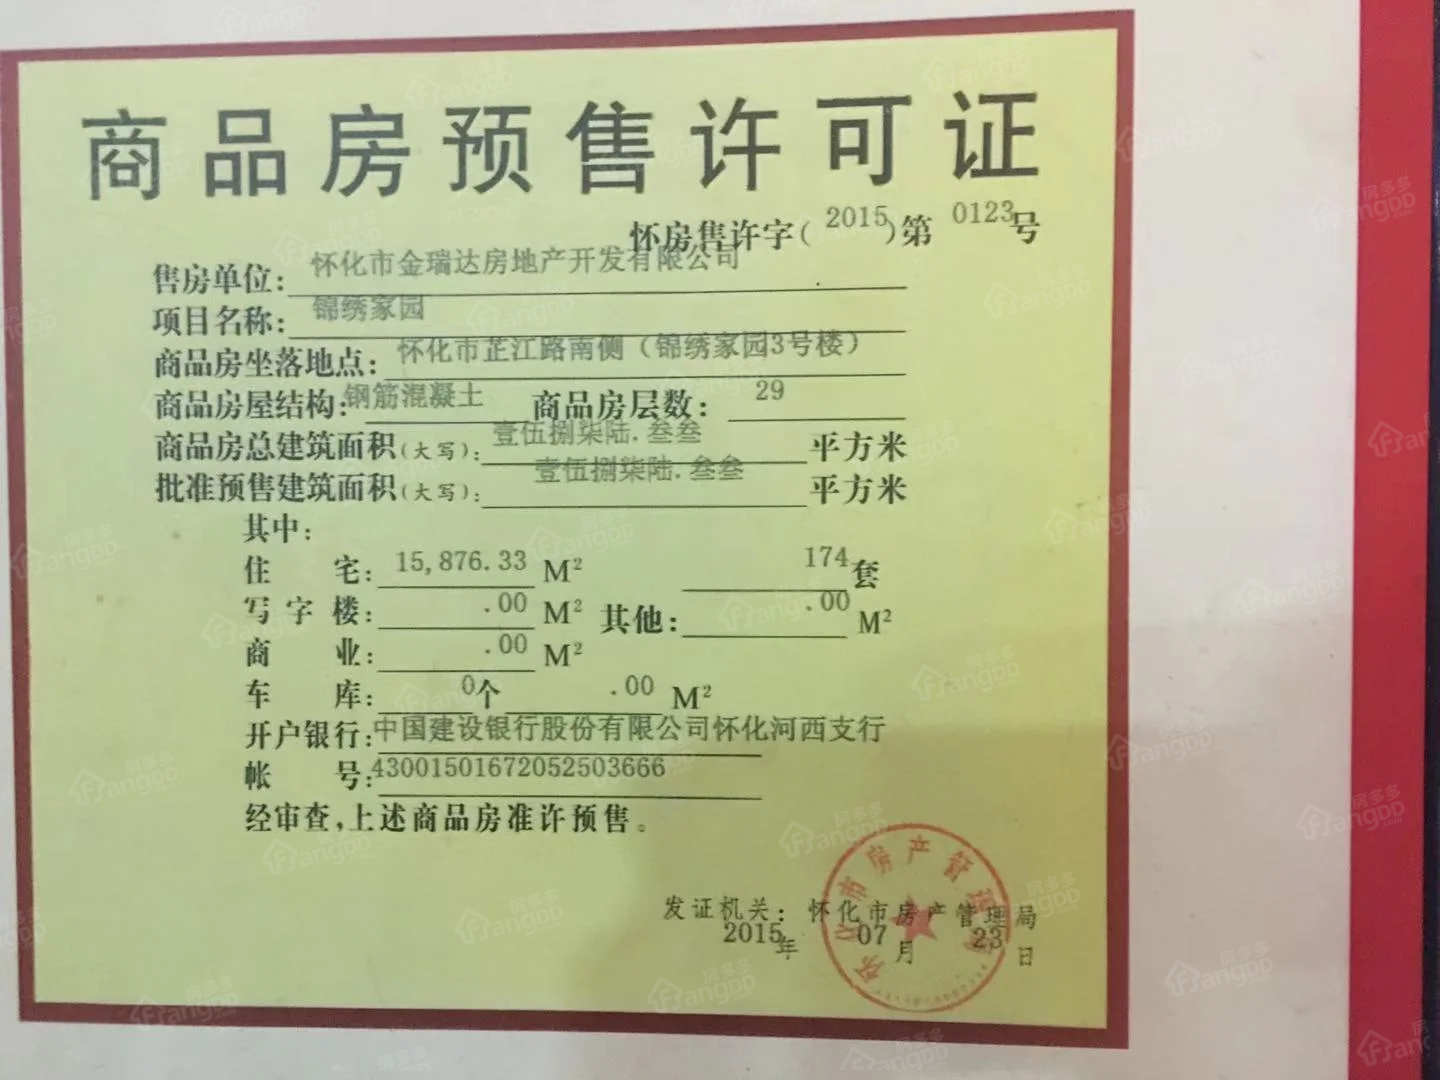 商品房预售许可证
怀房售许字(2015)第0123号
售房单位:怀化市金瑞达房地产开发有限公司
项目名称:锦绣家园
商品房坐落地点:怀化市芷江路南侧(锦绣家园3号楼)
商品房屋结构:钢筋混凝土 商品房层数:29
商品房总建筑面积(大写):壹伍捌柒陆.叁叁平方米
批准预售建筑面积(大写):壹伍捌柒陆.叁叁平方米
其中:
住宅:15,876.33 M² 174套
写字楼:.00 M² 其他:.00 M²
商业:.00 M²
车库:0个 .00 M²
开户银行:中国建设银行股份有限公司怀化河西支行
帐号:43001501672052503666
经审查,上述商品房准许预售。
发证机关:怀化市房产管理局
2015年07月23日
怀化市房产管理局
房多多
Fangdd.com